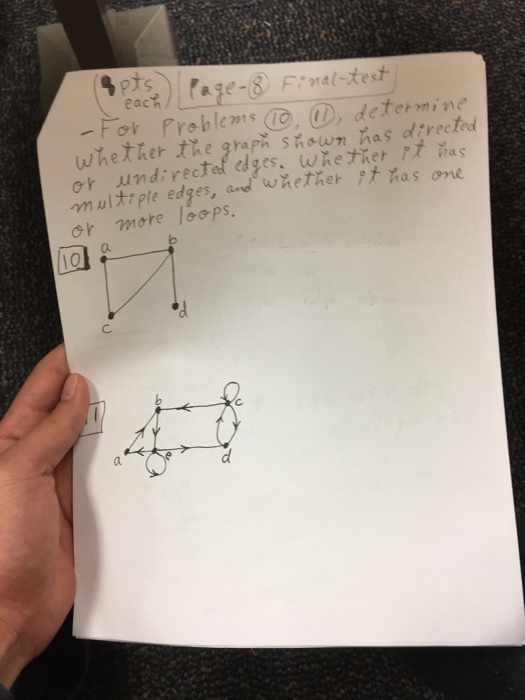 (8 pts each) Page-⑧ Final-test
- For Problems ⑩, ⑪, determine
whether the graph shown has directed
or undirected edges. Whether it has
multiple edges, and whether it has one
or more loops.
10
a b
c d
b c
a e d